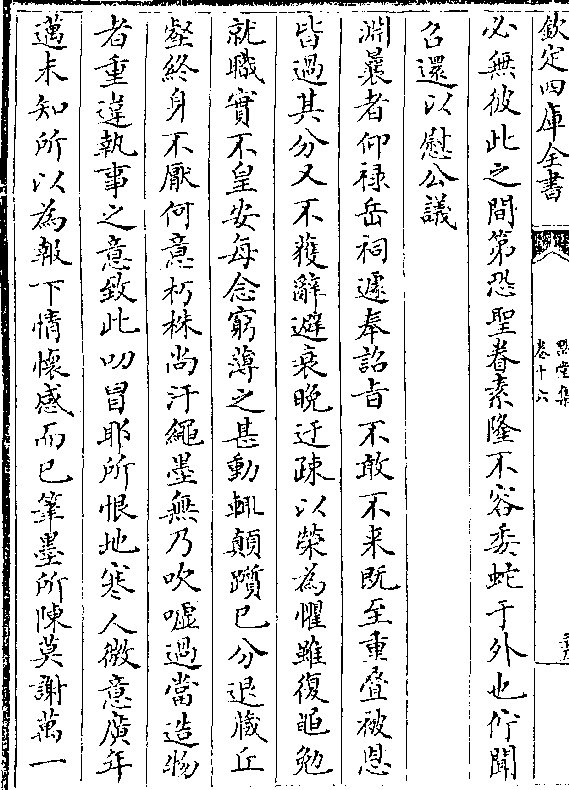 欽定四庫全書
點堂集
卷十六
必無彼此之間第恐聖眷素隆不容委蛇于外也佇聞
召還以慰公議
淵曩者仰祿岳祠遽奉詔旨不敢不来既至重疊被恩
皆過其分又不獲辭避衰晚迂疎以榮為懼雖復黽勉
就職實不皇安每念窮薄之甚動輒顛躓已分退藏丘
壑終身不厭何意朽株尚汙繩墨無乃吹噓過當造物
者重違執事之意致此叨冒耶所恨地寒人微意廣年
邁未知所以為報下情懷感而已筆墨所陳莫謝萬一